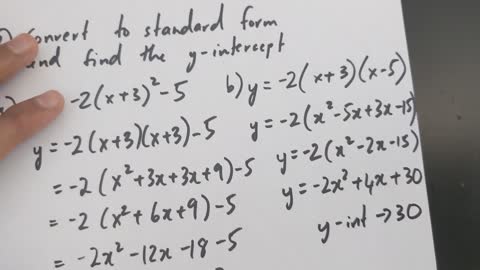 convert to standard form
and find the y-intercept
-2(x+3)²-5
y=-2(x+3)(x+3)-5
=-2(x²+3x+3x+9)-5
=-2(x²+6x+9)-5
=-2x²-12x-18-5
b) y=-2(x+3)(x-5)
y=-2(x²-5x+3x-15)
y=-2(x²-2x-15)
y=-2x²+4x+30
y-int→30